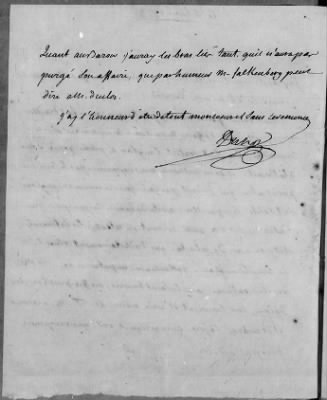 Quant au Baron j'auray les bras liés tant qu'il n'aura pas
purgé son affaire, que par humeur Mr falkenberg peut
dire
j'ay l'honneur d'etre de tout mon coeur et sans ceremonie